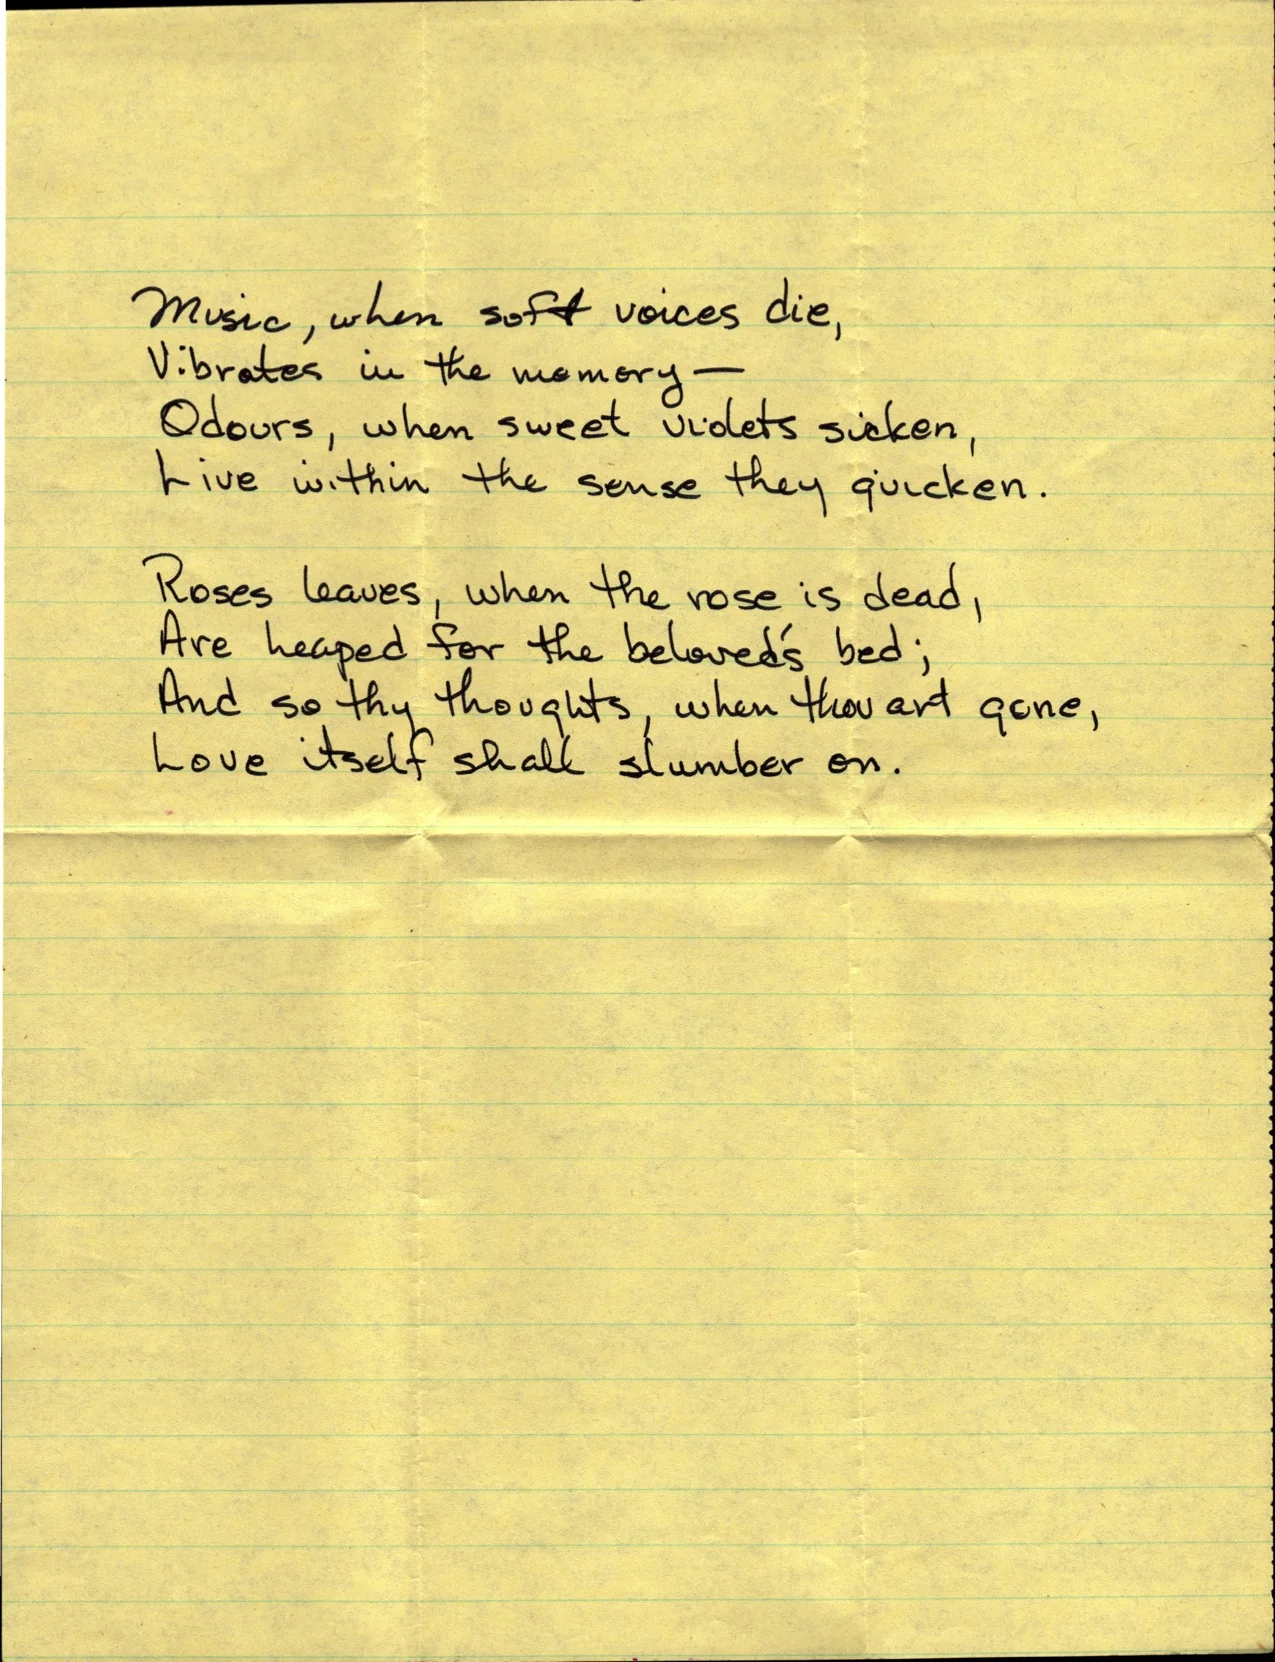 Music, when soft voices die,
Vibrates in the memory —
Odours, when sweet violets sicken,
Live within the sense they quicken.
Roses leaves, when the rose is dead,
Are heaped for the beloved's bed;
And so thy thoughts, when thou art gone,
Love itself shall slumber on.